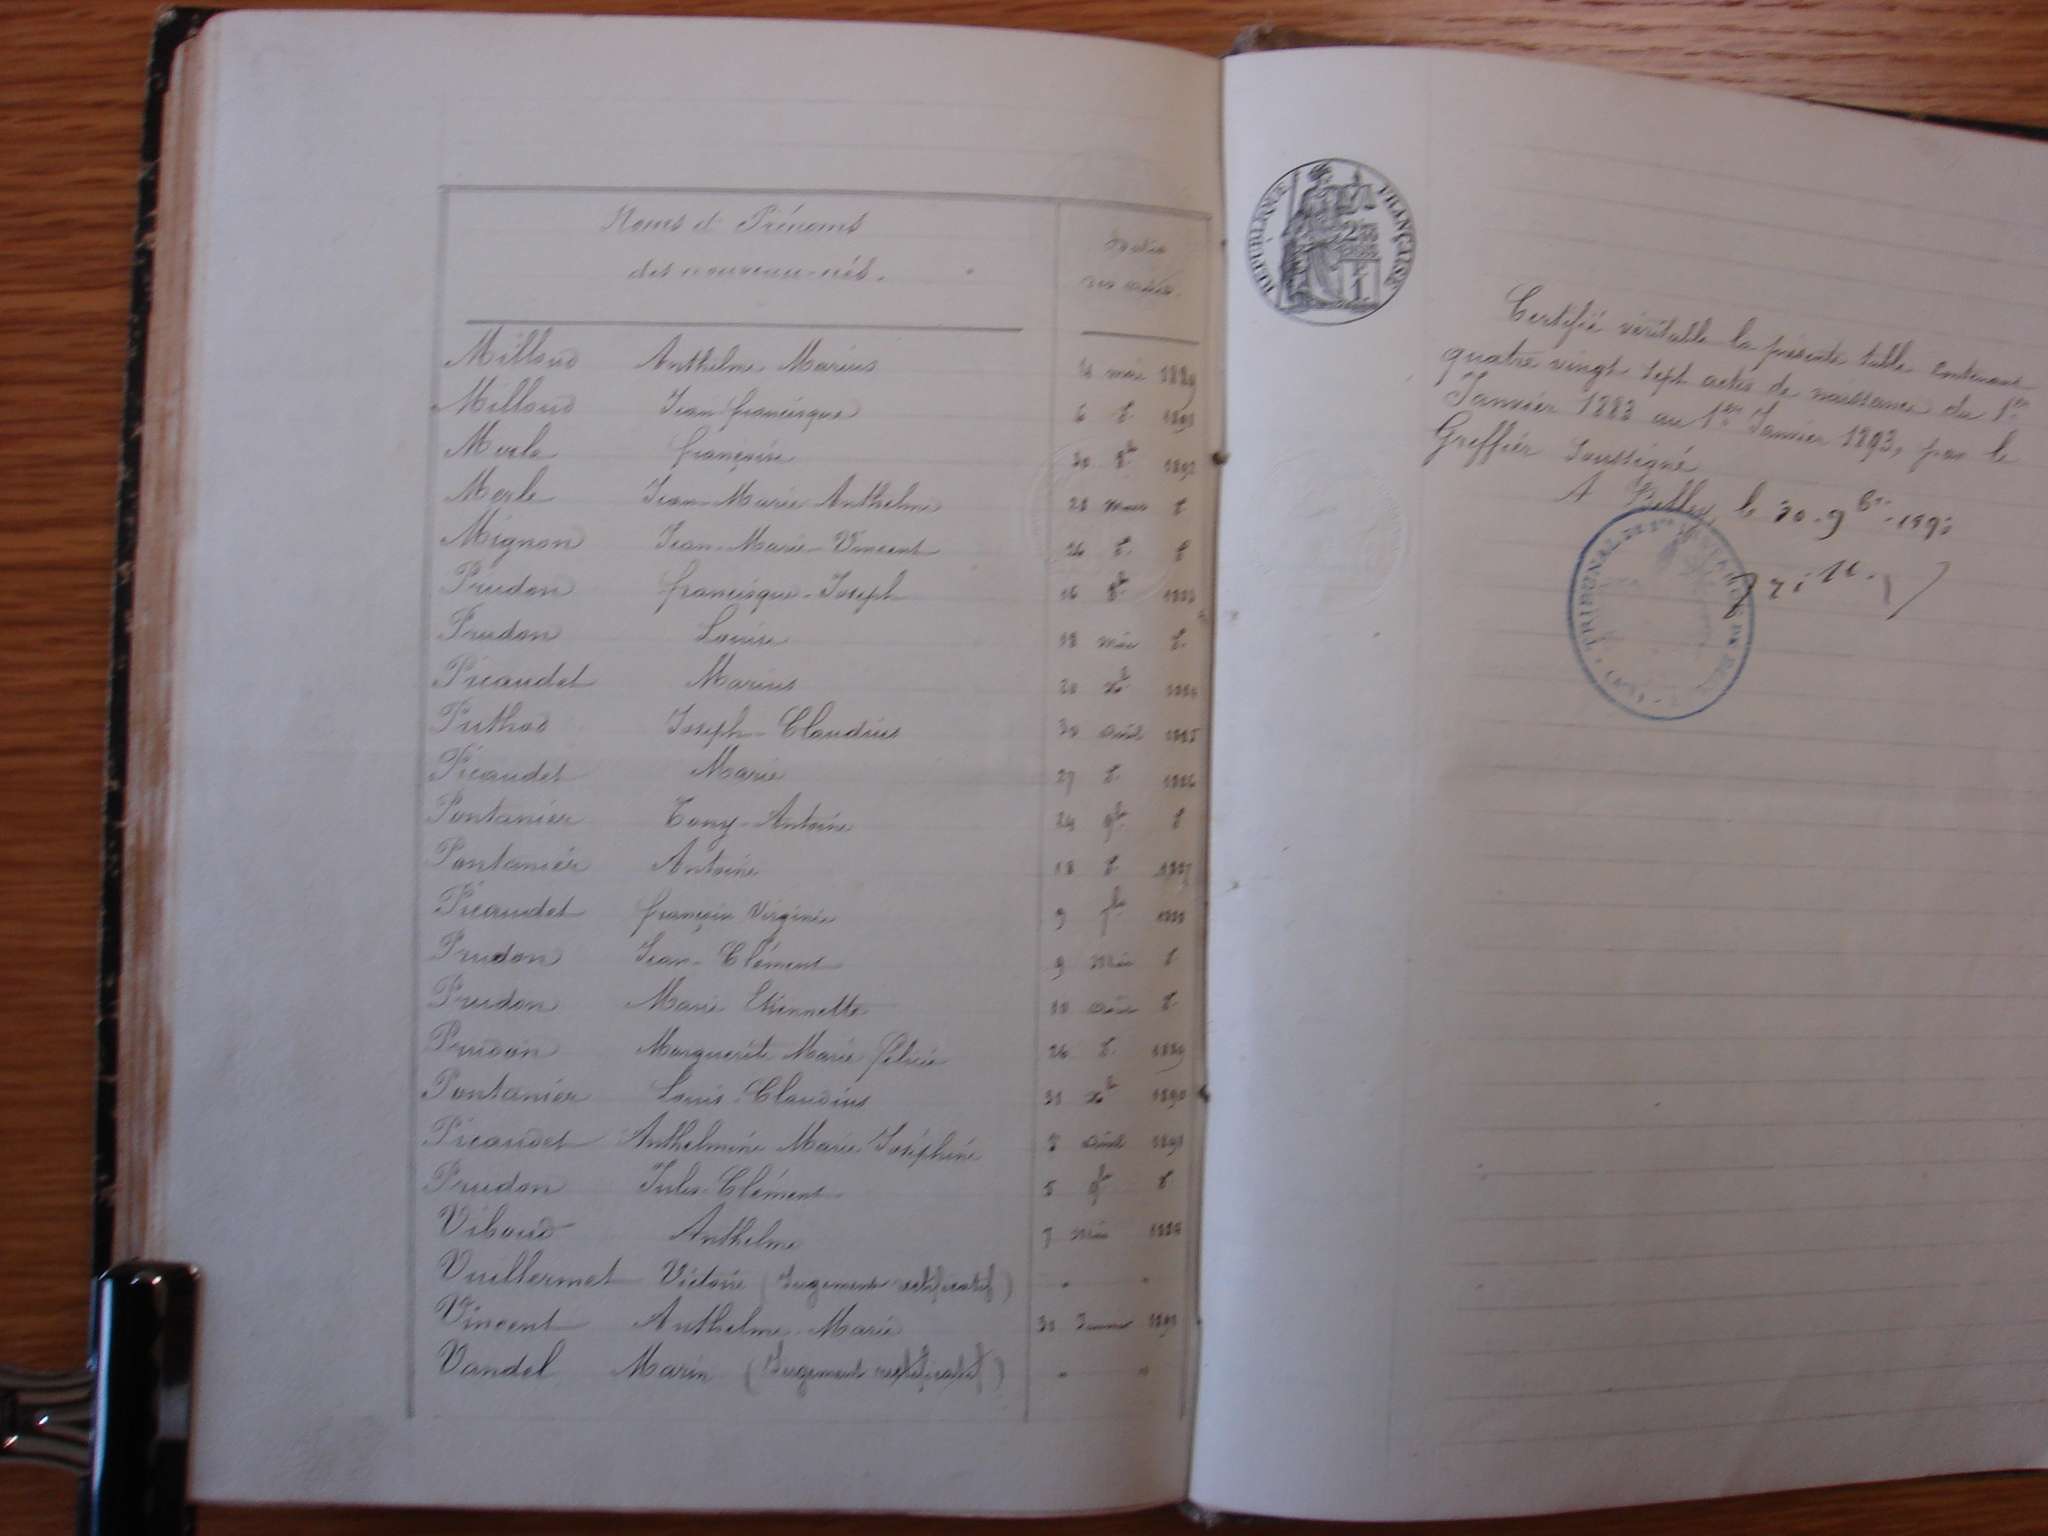 Noms et Prénoms
des nouveau-nés.
Dates
des actes.
Milloud Anthelme Marius mai 1889
Milloud Jean francisque 6 d° 1891
Merle françoise 30 8bre 1892
Merle Jean-Marie-Anthelme 28 mars d°
Mignon Jean-Marie-Vincent 26 d° d°
Prudon francisque-Joseph 16 8bre 1883
Prudon Louise 18 mai d°
Picaudet Marius 20 Xbre 1884
Puthod Joseph-Claudius 30 août 1885
Picaudet Marie 27 d° 1886
Pontanier Tony-Antoine 24 9bre d°
Pontanier Antoine 18 d° 1887
Picaudet Virginie 9 1888
Prudon Jean-Clément 9 Mai d°
Prudon Marie Etiennette 10 août d°
Prudon Marguerite Marie félicie 26 d° 1889
Pontanier Louis-Claudius 31 Xbre 1890
Picaudet Anthelmine Marie Joséphine 1891
Prudon Jules-Clément 5 9bre d°
Viboud Anthelme 7 Mai 1884
Vuillermet Victoire (Jugement rectificatif) " "
Vincent Anthelme-Marie Janvier 1891
Vandel Marin (Jugement rectificatif) " "
RÉPUBLIQUE FRANÇAISE
Certifié véritable la présente table contenant
quatre vingt sept actes de naissance du 1er
Janvier 1883 au 1er Janvier 1893, par le
Greffier soussigné
A Belley, le 30 - 9bre - 189
TRIBUNAL DE 1re INSTANCE DE